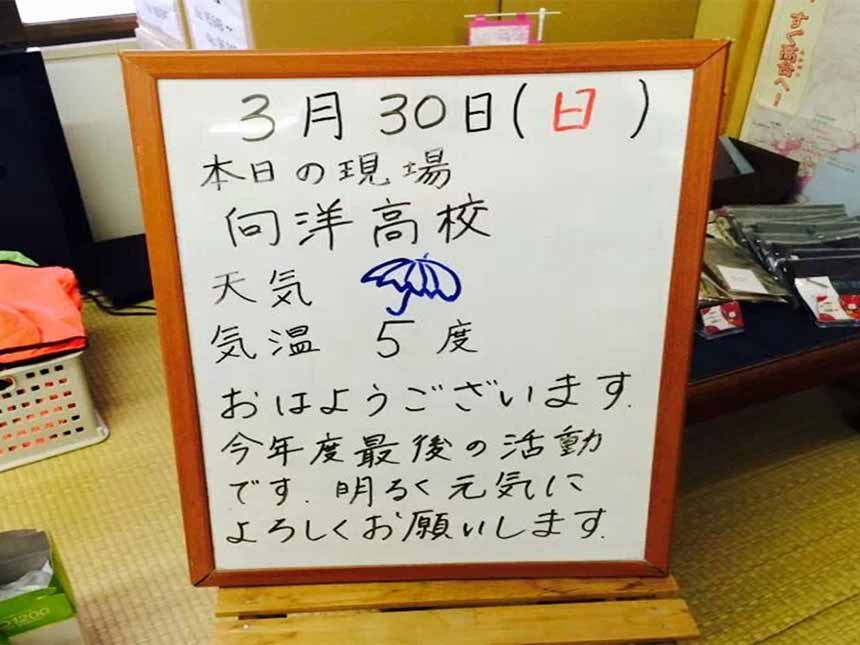 3月30日(日)
本日の現場
向洋高校
天気
気温 5度
おはようございます.
今年度最後の活動
です.明るく元気に
よろしくお願いします.
1200